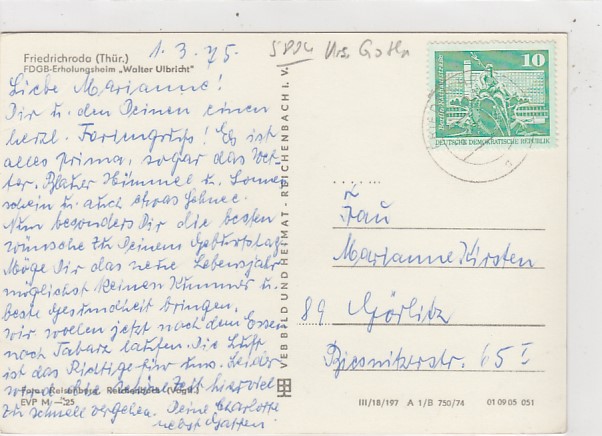 1. 3. 75.
5804 Krs. Gotha
Friedrichroda (Thür.)
FDGB-Erholungsheim „Walter Ulbricht"
Liebe Marianne!
Dir u. den Deinen einen
herzl. Feriengruß! Es ist
alles prima, sogar das Wet-
ter. Blauer Himmel u. Sonnen
schein u. auch etwas Schnee.
Nun besonders Dir die besten
wünsche zu Deinem Geburtstag
Möge Dir das neue Lebensjahr
möglichst keinen Kummer u.
beste Gesundheit bringen.
Wir wollen jetzt nach dem Essen
nach Tabarz laufen. Die Luft
ist das Richtige für uns. Leider
wird die schöne Zeit hier viel
zu schnell vergehen. Deine Charlotte
nebst Gatten.
Foto: Reisenberg, Reichenbach (Vogtl.)
EVP M —,25
VEB BILD UND HEIMAT · REICHENBACH I. V.
10
DEUTSCHE DEMOKRATISCHE REPUBLIK
Frau
Marianne Kirsten
89 Görlitz
Biesnitzerstr. 65 I
III/18/197 A 1/B 750/74 01 09 05 051